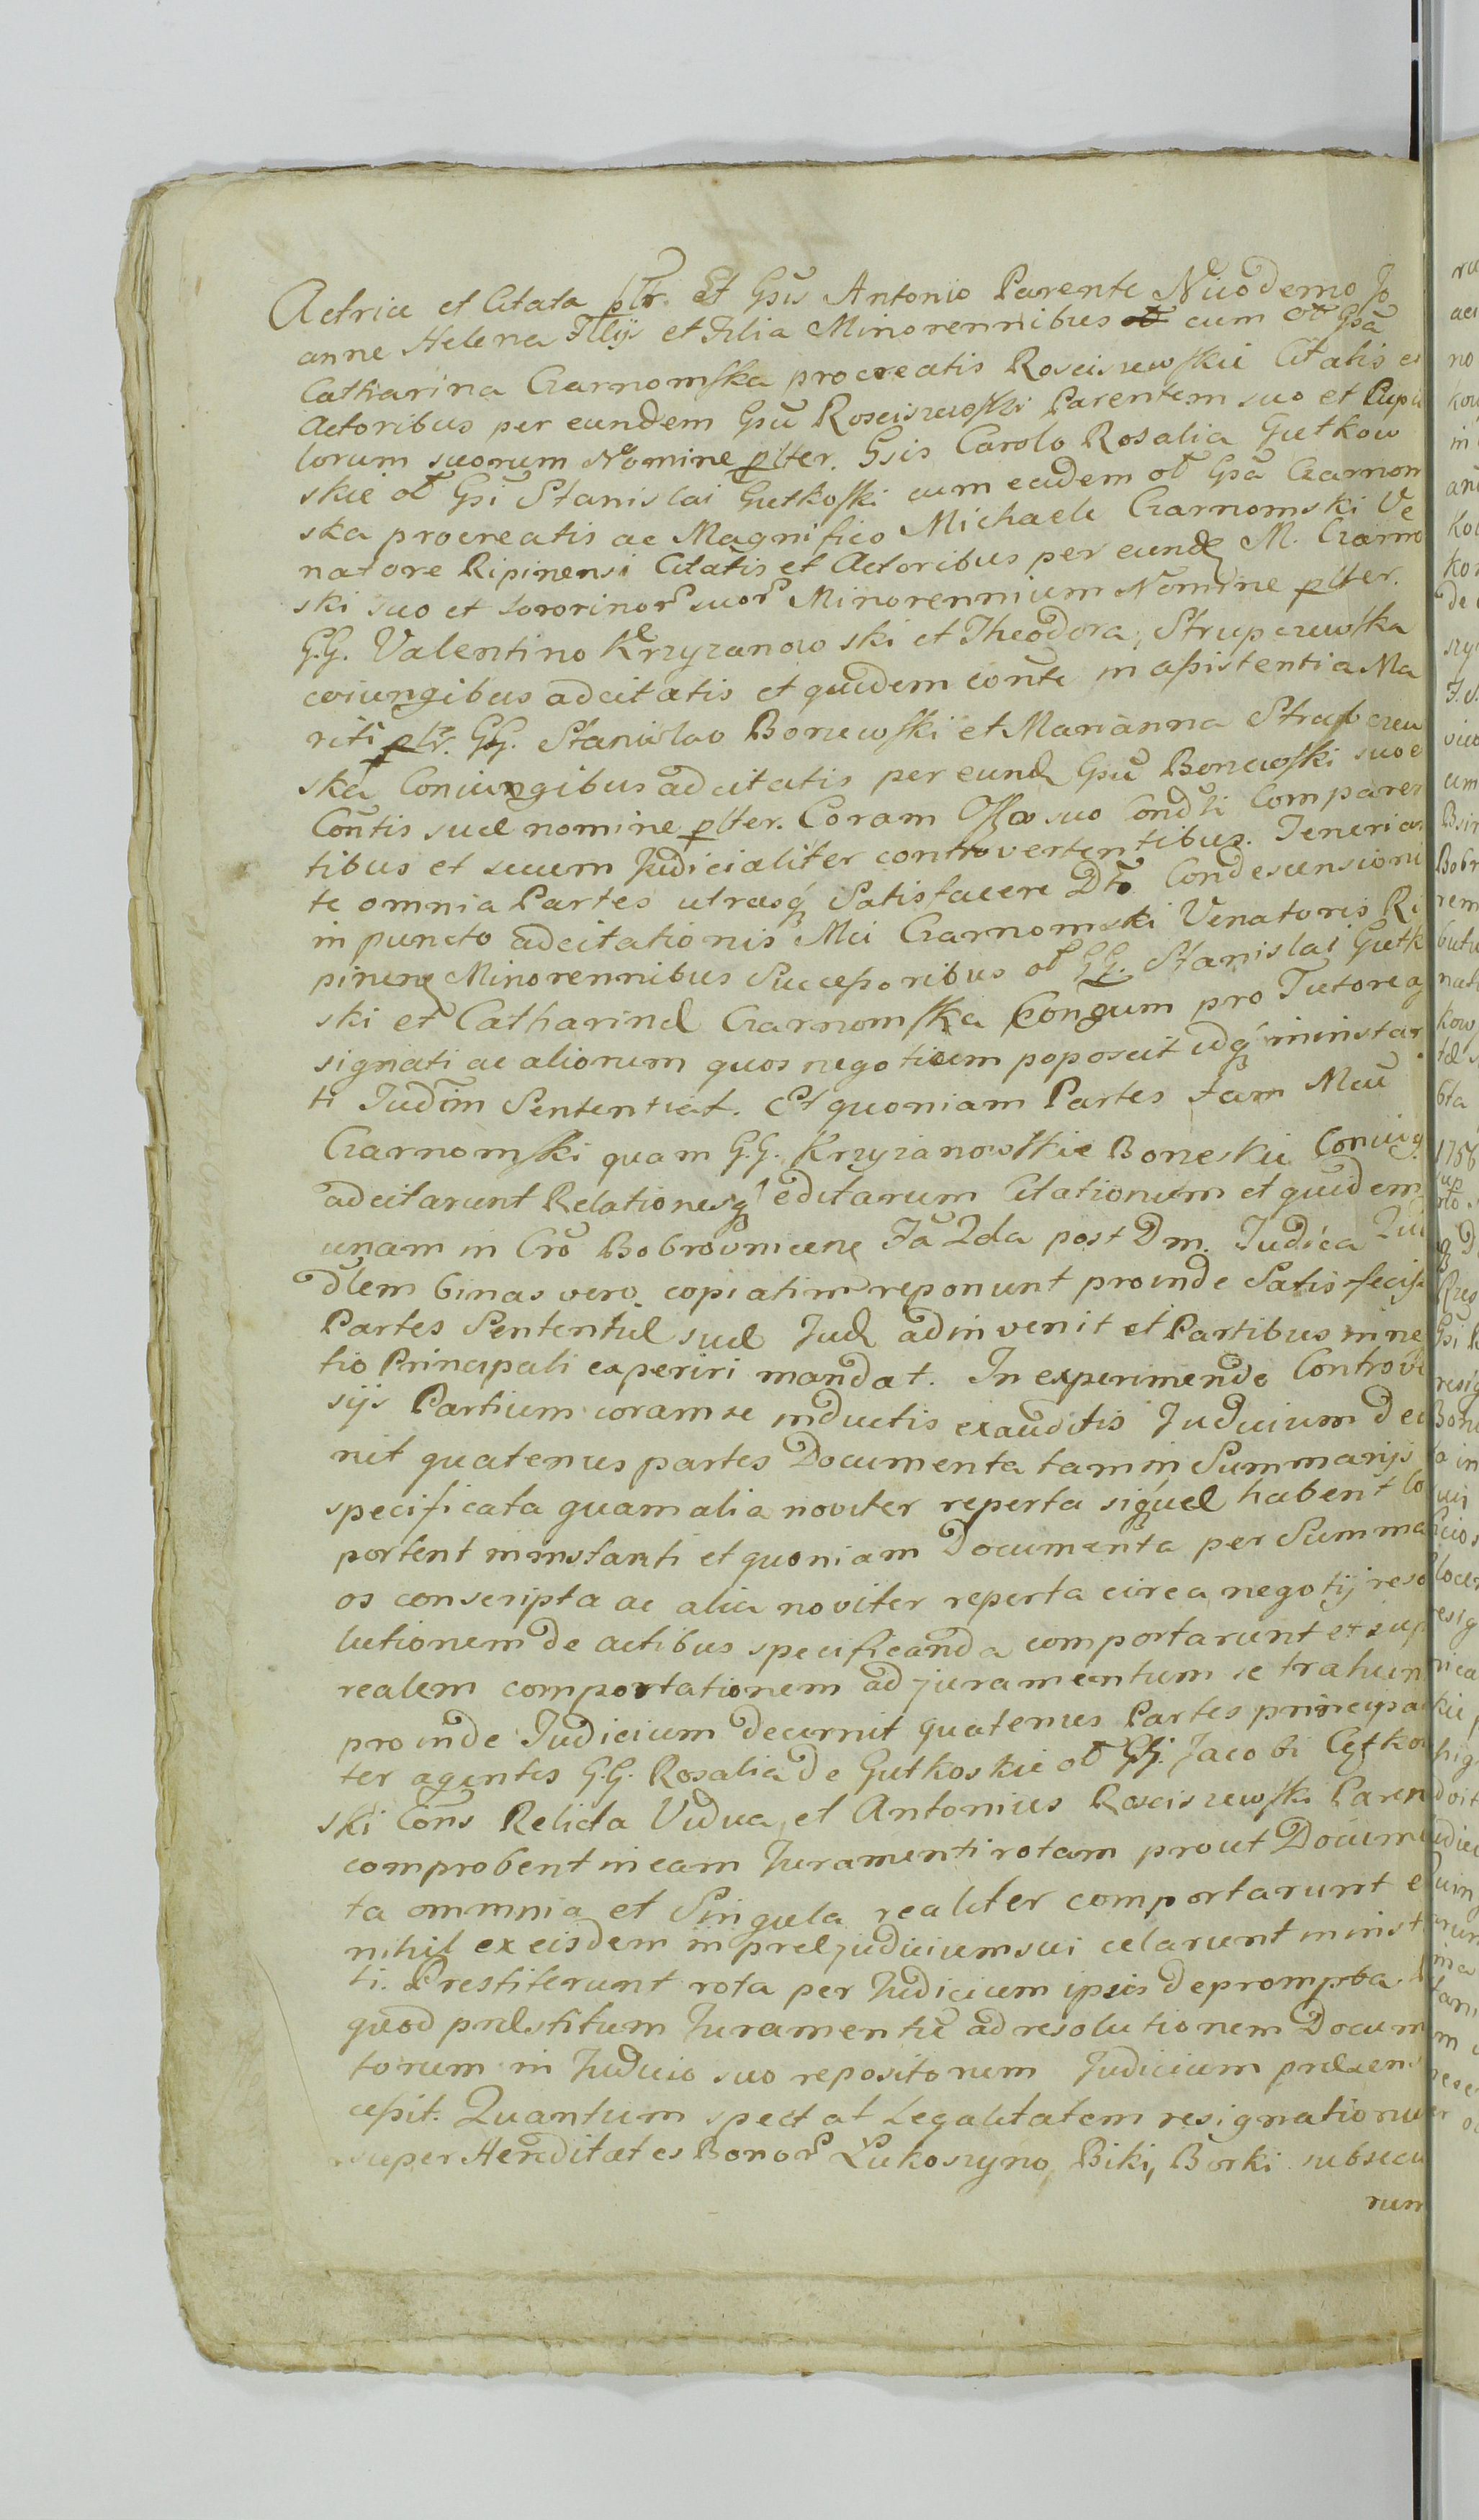 Actrice et Citata pltr. Et Gsis Antonio Parente Nicodemo Jo
anne Helena Fllijs et Filia Minorennibus cum ol Gsa
Catharina Czarnomska procreatis Rosciszewskie Citatis et
Actoribus per eundem Gsu Rosciszewski Parentem suo et Pupil
lorum suorum Nomine plter. Gsis Carolo Rosalia Gutkow
skie ol Gsi Stanislai Gutkoski cum eadem ol Gsa Czarnom
ska procreatis ac Magnifico Michaele Czarnomski Ve
natore Ripinensi Citatis et Actoribus per eund M. Czarno
ski suo et sororinor suor Minorennium Nomine plter.
G.G. Valentino Krzyzanowski et Theodora Strupczewska
coniungibus adcitatis et quidem conte in assistentia Ma
riti pltr. GG. Stanislao Bonewski et Marianna Strupczew
ska Coniungibus adcitatis per eund Gsu Bonewski suo e
Contis suae nomine plter. Coram Offo suo Condli Comparen
tibus et secum Judicialiter controvertentibus. Inenrian
te omnia Partes utrasq Satisfacere Dto Condescensioni
in puncto adcitationis Mci Czarnomski Venatoris Ri
pinens Minorennibus Successoribus ol GG. Stanislai Gutk
ski et Catharinae Czarnomska Congum pro Tutore a
signati ac aliorum quos negotium poposcit idq in instan
ti Judim Sententiat. Et quoniam Partes tam Mcu
Czarnomski quam G.G. Krzyzanowskie Boneskie Coniug.
adcitarunt Relationesq editarum Citationum et quidem
unam in Cro Bobrovnicens Fa 2da post Dm. Judica Qui
dlem binas vero copiatim reponunt proinde Satisfeciss
Partes Sententiae suae Jud adinvenit et Partibus in ne
tio Principali experiri mandat. In experimendo Controve
sijs Partium coram se inductis exauditis Judicium dec
nit quatenus partes Documenta tam in Summarijs
specificata quam alia noviter reperta siquae habent Co
portent in instanti et quoniam Documenta per Summa
os conscripta ac alia noviter reperta circa negotij reso
lutionem de actibus specificanda comportarunt et sup
realem comportationem ad juramentum se trahun
proinde Judicium decernit quatenus Partes principa
ter agentes G.G. Rosalia de Gutkoskie ol GG. Jacobi Cętkow
ski Cons Relicta Vidua, et Antonius Rosciszewski Paren
comprobent in eam Juramenti rotam prout Docume
ta ommnia et Singula realiter comportarunt e
nihil ex eisdem in praejudicium sui celarunt in inst
ti. Prestiterunt rota per Judicium ipsis deprompta.
quod praestitum Juramentu ad resolutionem Docum
torum in Judicio suo repositorum Judicium praesens
cessit. Quantum spectat Legalitatem resignationu
super Hereditates Bonor Łukoszyno, Biki, Borki subsecu
rum